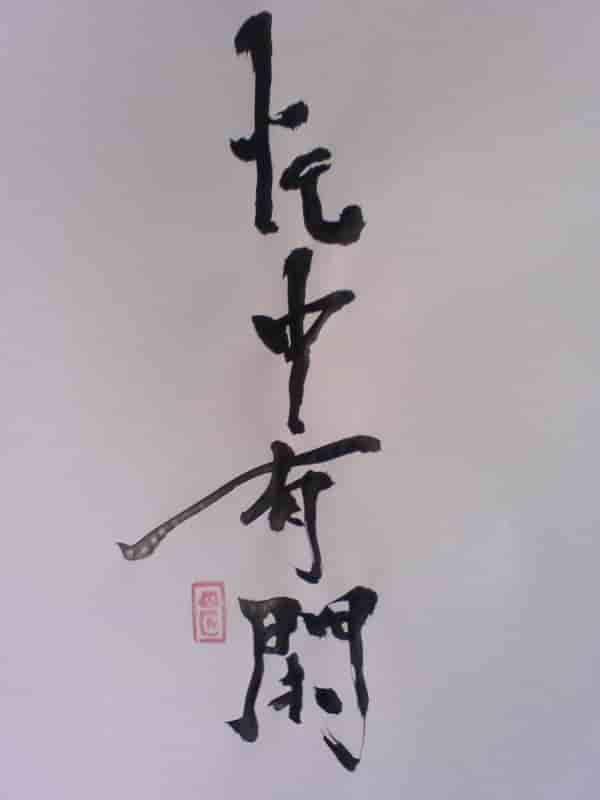 忙中有閑